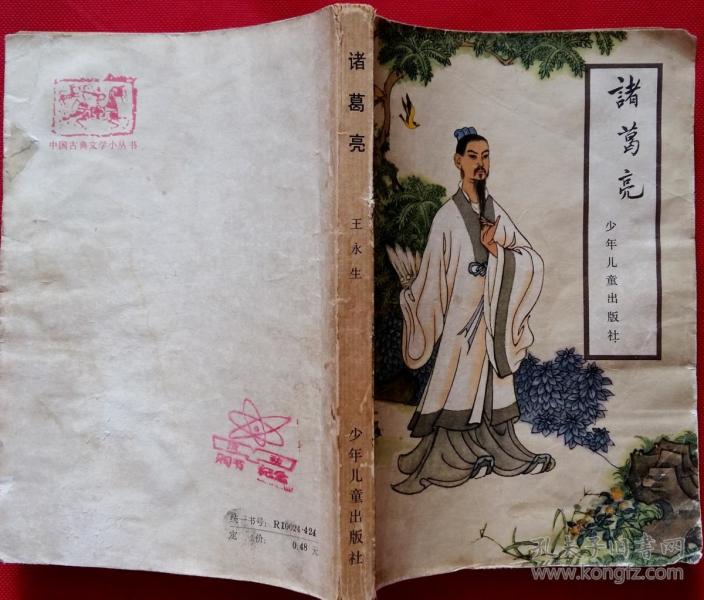 諸葛亮
少年儿童出版社
诸葛亮
王永生
少年儿童出版社
中国古典文学小丛书
购书 纪念
统一书号：R10024·424
定 价： 0.48 元
孔夫子旧书网
www.kongfz.com